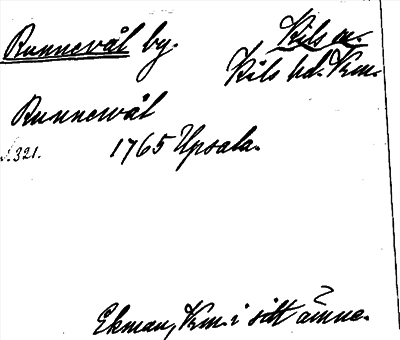 Runnevål by. Kils sn.
Kils hd. Krm.
Runnewål
s. 321. 1765 Upsala.
Ekman, Vrm. i sitt ämne.